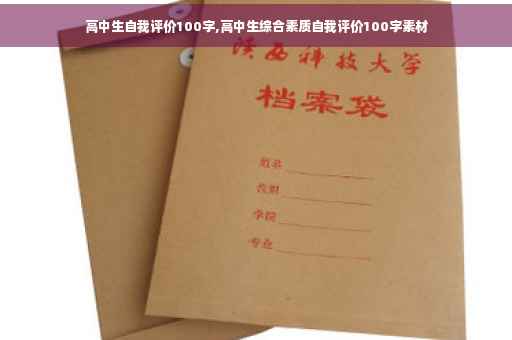 高中生自我评价100字,高中生综合素质自我评价100字素材
陕西科技大学
档案袋
姓名
学院
专业